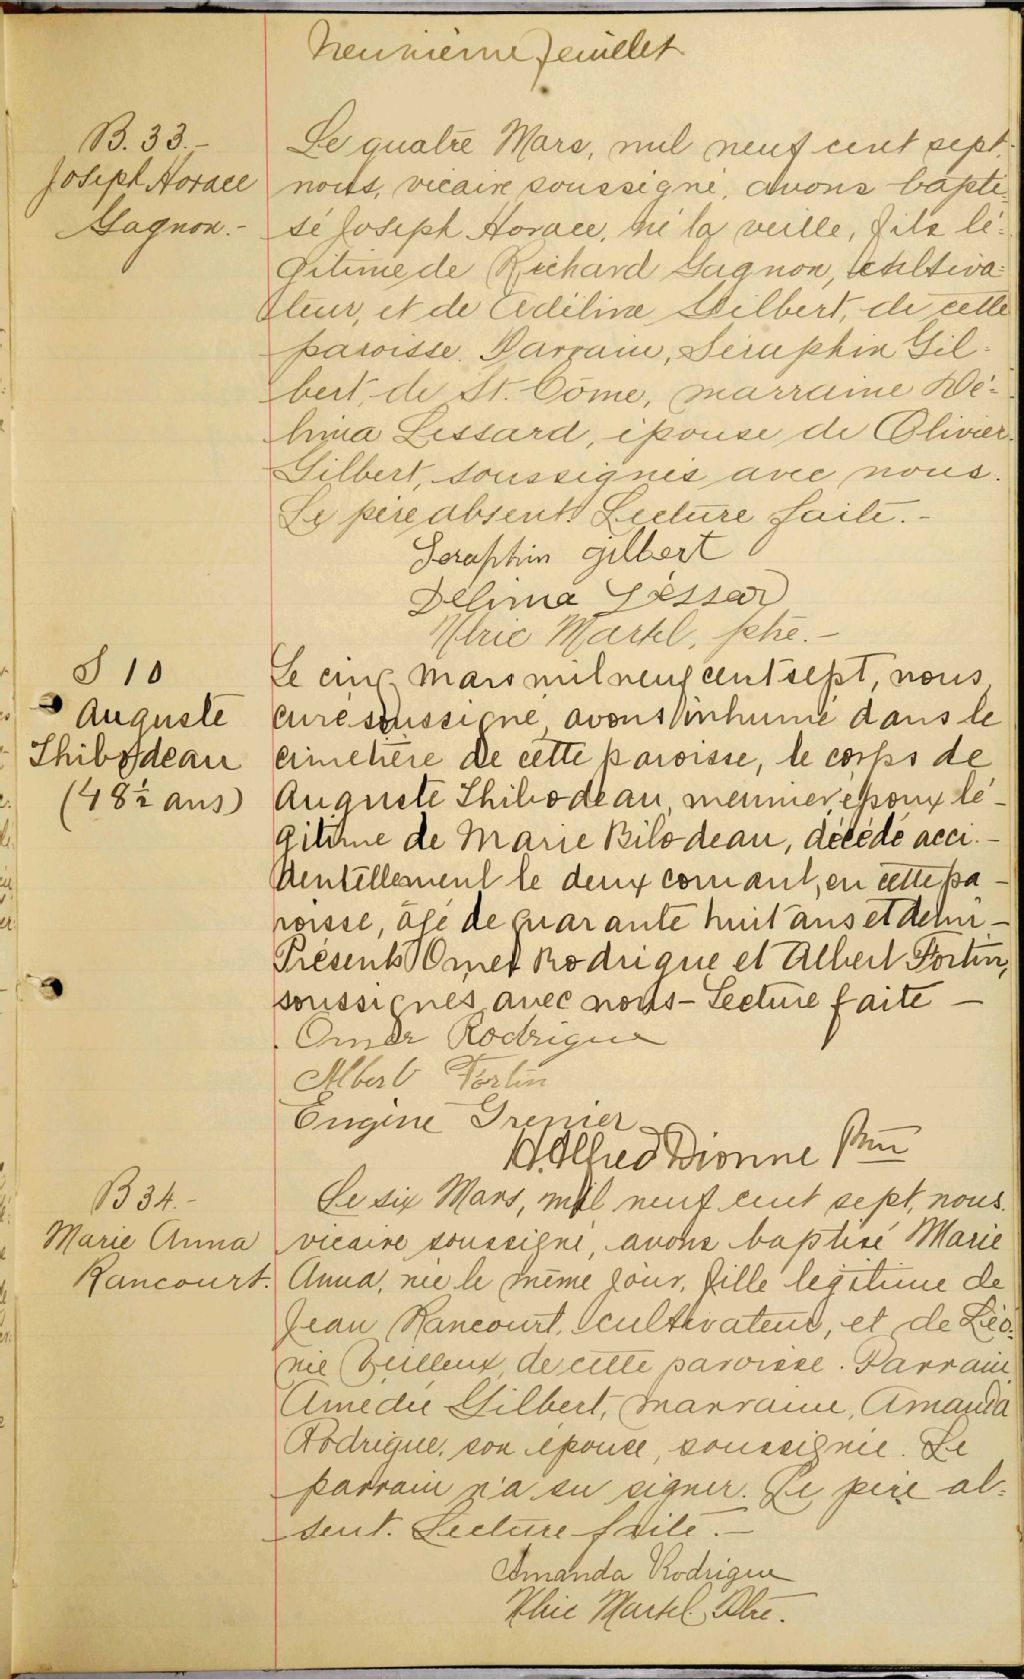 Neuvième feuillet
B. 33.-
Joseph Horace
Gagnon.-
Le quatre Mars, mil neuf cent sept,
nous, vicaire soussigné, avons bapti-
sé Joseph Horace, né la veille, fils lé-
gitime de Richard Gagnon, cultiva-
teur, et de Adéline Gilbert, de cette
paroisse. Parrain, Séraphin Gil-
bert, de St. Côme, marraine Dé-
lima Lessard, épouse de Olivier
Gilbert, soussignés avec nous.
Le père absent. Lecture faite.-
Seraphin gilbert
Delima Léssard
Ulric Martel, ptre.-
S 10
Auguste
Thibodeau
(48 ½ ans)
Le cinq mars mil neuf cent sept, nous,
curé soussigné, avons inhumé dans le
cimetière de cette paroisse, le corps de
Auguste Thibodeau, meunier, époux lé-
gitime de Marie Bilodeau, décédé acci-
dentellement le deux courant, en cette pa-
roisse, âgé de quarante huit ans et demi-
Présents Omer Rodrigue et Albert Fortin,
soussignés avec nous- Lecture faite -
Omer Rodrigue
Albert Fortin
Eugène Grenier
H. Alfred Dionne Ptre
B 34.-
Marie Anna
Rancourt.
Le six Mars, mil neuf cent sept, nous
vicaire soussigné, avons baptisé Marie
Anna, née le même jour, fille légitime de
Jean Rancourt, cultivateur, et de Léo-
nie Veilleux, de cette paroisse. Parrain
Amédée Gilbert, marraine, Amanda
Rodrigue, son épouse, soussignée. Le
parrain n'a su signer. Le père ab-
sent. Lecture faite.-
Amanda Rodrigue
Ulric Martel, Ptre.